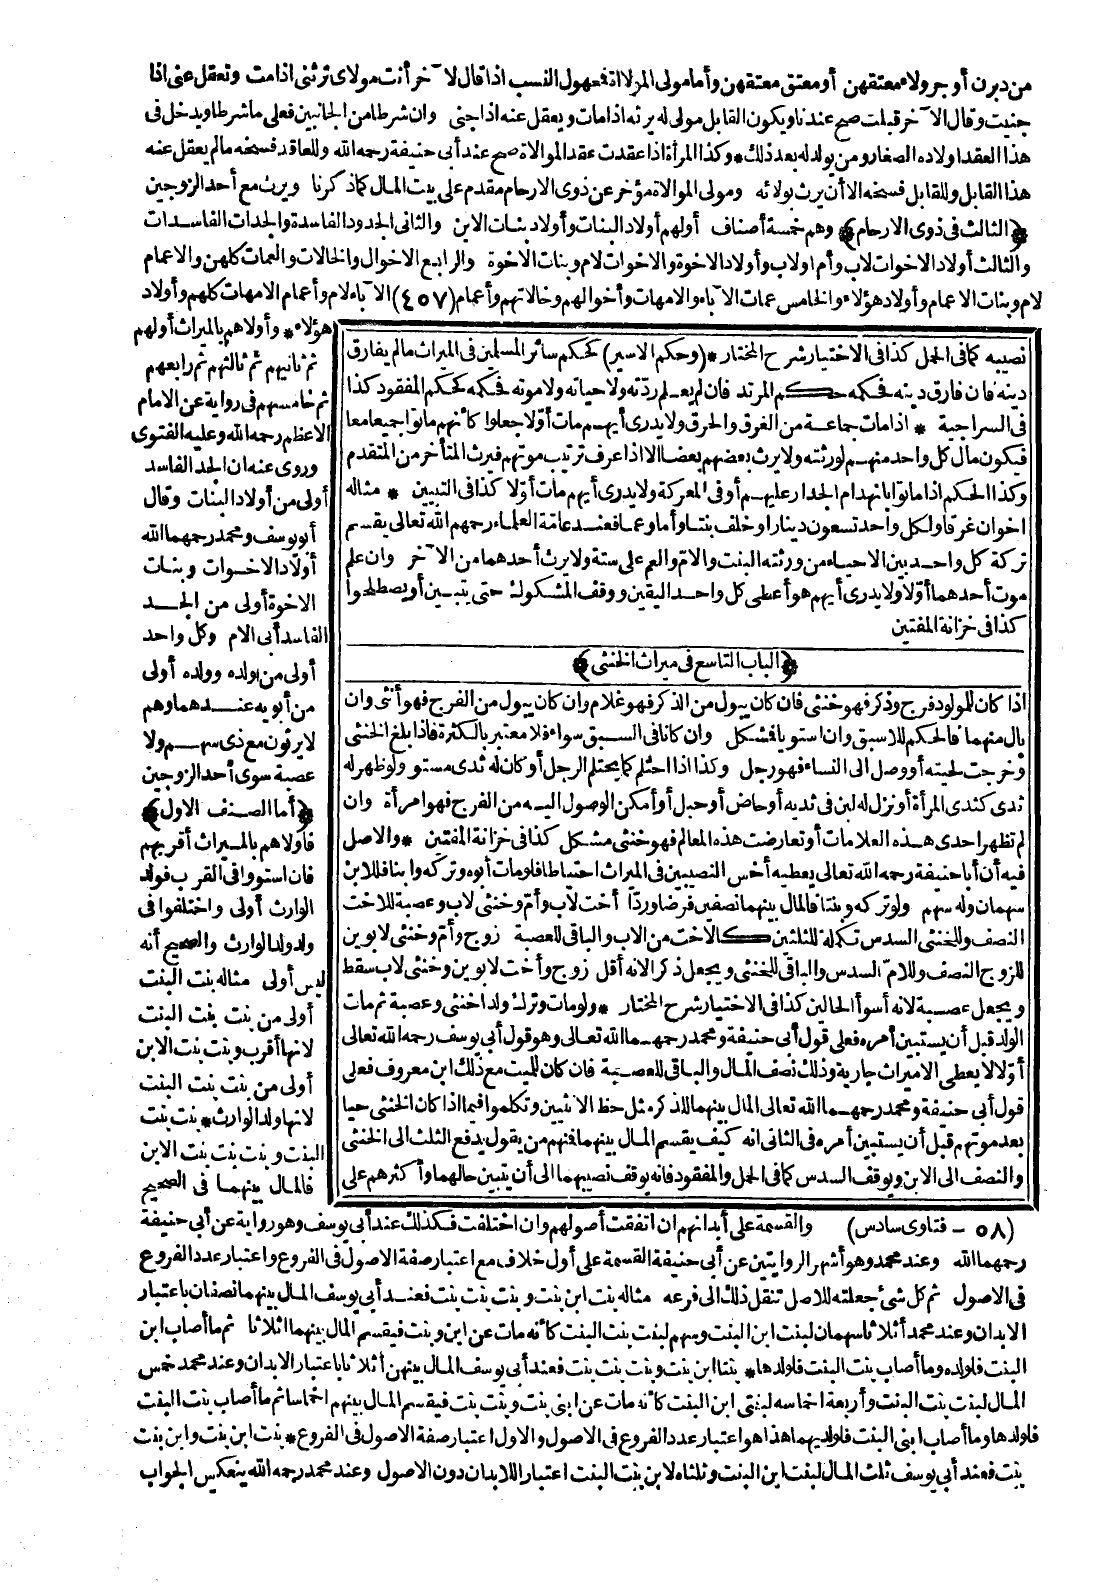 من دبرن أو جر ولاء معتقهن أو معتق معتقهن وأما مولى الموالاة فمجهول النسب اذا قال لآخر أنت مولاى ترثنى اذا مت وتعقل عنى اذا
جنيت وقال الآخر قبلت صح عندنا ويكون القابل مولى له يرثه اذا مات ويعقل عنه اذا جنى وان شرطا من الجانبين فعلى ما شرطا ويدخل فى
هذا العقد اولاده الصغار ومن يولد له بعد ذلك * وكذا المرأة اذا عقدت عقد الموالاة صح عند أبى حنيفة رحمه الله وللعاقد فسخه مالم يعقل عنه
هذا القابل وللقابل فسخه الا أن يرث بولائه ومولى الموالاة مؤخر عن ذوى الارحام مقدم على بيت المال كما ذكرنا ويرث مع أحد الزوجين
﴿الثالث فى ذوى الارحام﴾ وهم خمسة أصناف أولهم أولاد البنات وأولاد بنات الابن والثانى الجدود الفاسدة والجدات الفاسدات
والثالث أولاد الاخوات لاب وأم اولاب وأولاد الاخوة والاخوات لام وبنات الاخوة والرابع الاخوال والخالات والعمات كلهن والاعمام
لام وبنات الاعمام وأولاد هؤلاء والخامس عمات الآباء والامهات وأخوالهم وخالاتهم وأعمام (٤٥٧) الآباء لام وأعمام الامهات كلهم وأولاد
هؤلاء * وأولاهم بالميراث أولهم
ثم ثانيهم ثم ثالثهم ثم رابعهم
ثم خامسهم فى رواية عن الامام
الاعظم رحمه الله وعليه الفتوى
وروى عنه ان الجد الفاسد
أولى من أولاد البنات وقال
أبو يوسف ومحمد رحمهما الله
أولاد الاخوات وبنات
الاخوة أولى من الجد
الفاسد أبى الام وكل واحد
أولى من ولده وولده أولى
من أبويه عندهما وهم
لا يرثون مع ذى سهم ولا
عصبة سوى أحد الزوجين
﴿أما الصنف الاول﴾
فأولاهم بالميراث أقربهم
فان استووا فى القرب فولد
الوارث أولى واختلفوا فى
ولد ولد الوارث والصحيح أنه
ليس أولى مثاله بنت البنت
أولى من بنت بنت البنت
لانها أقرب وبنت بنت الابن
أولى من بنت بنت البنت
لانها ولد الوارث * بنت بنت
البنت وبنت بنت الابن
فالمال بينهما فى الصحيح
نصيبه كما فى الحمل كذا فى الاختيار شرح المختار * (وحكم الاسير) كحكم سائر المسلمين فى الميراث مالم يفارق
دينه فان فارق دينه فحكمه حكم المرتد فان لم يعلم ردته ولا حياته ولا موته فحكمه كحكم المفقود كذا
فى السراجية * اذا مات جماعة من الغرقى والحرقى ولا يدرى أيهم مات أولا جعلوا كأنهم ماتوا جميعا معا
فيكون مال كل واحد منهم لورثته ولا يرث بعضهم بعضا الا اذا عرف ترتيب موتهم فيرث المتأخر من المتقدم
وكذا الحكم اذا ماتوا بانهدام الجدار عليهم أو فى المعركة ولا يدرى أيهم مات أولا كذا فى التبيين * مثاله
اخوان غرقا ولكل واحد تسعون دينارا وخلف بنتا وأما وعما فعند عامة العلماء رحمهم الله تعالى يقسم
تركة كل واحد بين الاحياء من ورثته البنت والام والعم على ستة ولا يرث أحدهما من الآخر وان علم
موت أحدهما أولا ولا يدرى أيهم هو أعطى كل واحد اليقين ووقف المشكوك حتى يتبين أو يصطلحوا
كذا فى خزانة المفتين
﴿الباب التاسع فى ميراث الخنثى﴾
اذا كان للمولود فرج وذكر فهو خنثى فان كان يبول من الذكر فهو غلام وان كان يبول من الفرج فهو أنثى وان
بال منهما فالحكم للاسبق وان استويا فمشكل وان كانا فى السبق سواء فلا معتبر بالكثرة فاذا بلغ الخنثى
وخرجت لحيته أو وصل الى النساء فهو رجل وكذا اذا احتلم كما يحتلم الرجل أو كان له ثدى مستو ولو ظهر له
ثدى كثدى المرأة أو نزل له لبن فى ثديه أو حاض أو حبل أو أمكن الوصول اليه من الفرج فهو امرأة وان
لم تظهر احدى هذه العلامات أو تعارضت هذه المعالم فهو خنثى مشكل كذا فى خزانة المفتين * والاصل
فيه أن أبا حنيفة رحمه الله تعالى يعطيه أخس النصيبين فى الميراث احتياطا فلو مات أبوه وتركه وابنا فللابن
سهمان وله سهم ولو تركه وبنتا فالمال بينهما نصفين فرضا وردا أخت لاب وأم وخنثى لاب وعصبة للاخت
النصف وللخنثى السدس تكملة للثلثين كالاخت من الاب والباقى للعصبة زوج وأم وخنثى لابوين
للزوج النصف وللام السدس والباقى للخنثى ويجعل ذكرا لانه أقل زوج وأخت لابوين وخنثى لاب سقط
ويجعل عصبة لانه أسوأ الحالين كذا فى الاختيار شرح المختار * ولو مات وترك ولدا خنثى وعصبة ثم مات
الولد قبل أن يستبين أمره فعلى قول أبى حنيفة ومحمد رحمهما الله تعالى وهو قول أبى يوسف رحمه الله تعالى
أولا لا يعطى الا ميراث جارية وذلك نصف المال والباقى للعصبة فان كان للميت مع ذلك ابن معروف فعلى
قول أبى حنيفة ومحمد رحمهما الله تعالى المال بينهما للذكر مثل حظ الانثيين وتكلموا فيما اذا كان الخنثى حيا
بعد موتهم قبل أن يستبين أمره فى الثانى انه كيف يقسم المال بينهما فمنهم من يقول يدفع الثلث الى الخنثى
والنصف الى الابن ويوقف السدس كما فى الحمل والمفقود فانه يوقف نصيبهما الى أن يتبين حالهما وأكثرهم على
(٥٨ - فتاوى سادس) والقسمة على أبدانهم ان اتفقت أصولهم وان اختلفت فكذلك عند أبى يوسف وهو رواية عن أبى حنيفة
رحمهما الله وعند محمد وهو أشهر الروايتين عن أبى حنيفة القسمة على أول خلاف مع اعتبار صفة الاصول فى الفروع واعتبار عدد الفروع
فى الاصول ثم كل شئ جعلته للاصل تنقل ذلك الى فرعه مثاله بنت ابن بنت وبنت بنت بنت فعند أبى يوسف المال بينهما نصفان باعتبار
الابدان وعند محمد أثلاثا سهمان لبنت ابن البنت وسهم لبنت بنت البنت كأنه مات عن ابن وبنت فيقسم المال بينهما اثلاثا ثم ما أصاب ابن
البنت فلولده وما أصاب بنت البنت فلولدها * بنتا ابن بنت وبنت بنت بنت فعند أبى يوسف المال بينهن أثلاثا باعتبار الابدان وعند محمد خمس
المال لبنت بنت البنت وأربعة اخماسه لبنتى ابن البنت كأنه مات عن ابنى بنت وبنت بنت فيقسم المال بينهم اخماسا ثم ما أصاب بنت البنت
فلولدها وما أصاب ابنى البنت فلولديهما هذا هو اعتبار عدد الفروع فى الاصول والاول اعتبار صفة الاصول فى الفروع * بنت ابن بنت وابن بنت
بنت فعند أبى يوسف ثلث المال لبنت ابن البنت وثلثاه لابن بنت البنت اعتبارا للابدان دون الاصول وعند محمد رحمه الله ينعكس الجواب